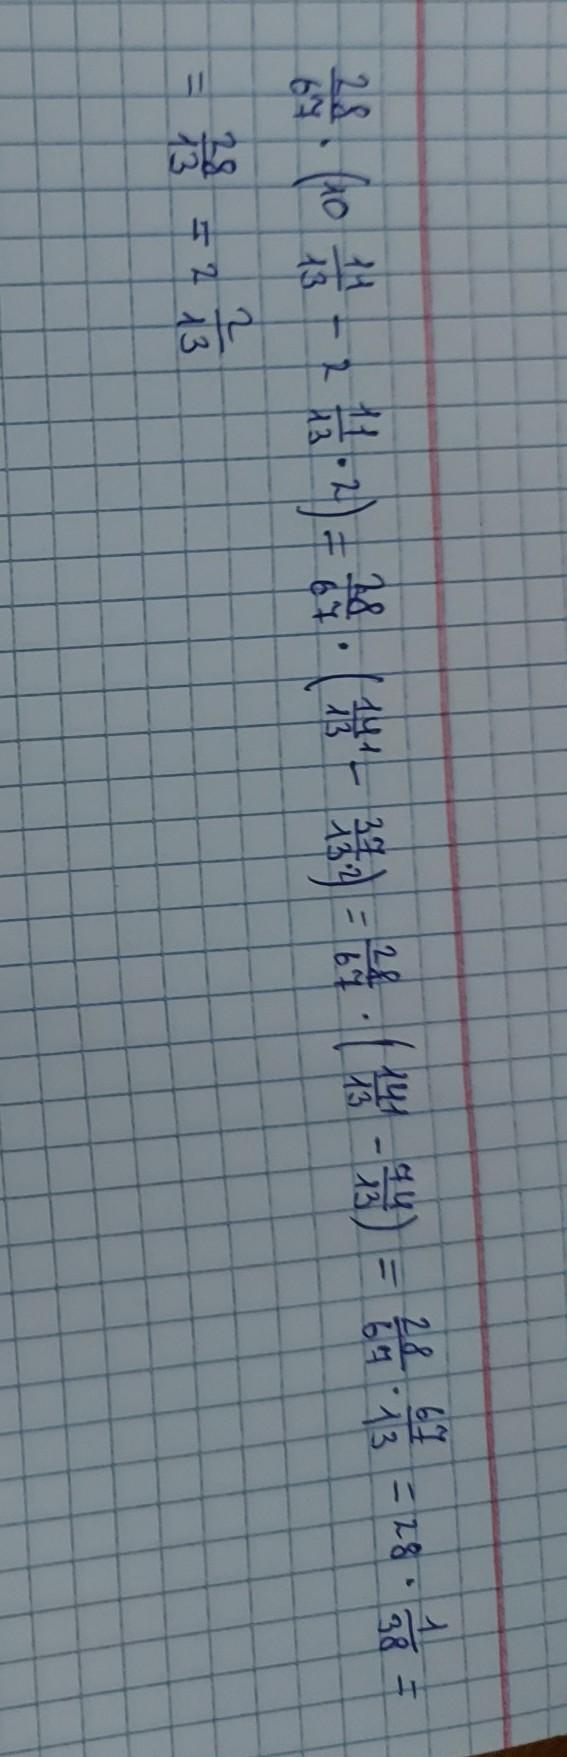 28/67 · (10 11/13 - 2 11/13 · 2) = 28/67 · (141/13 - 37/13·2) = 28/67 · (141/13 - 74/13) = 28/67 · 67/13 = 28 · 1/38 =
= 28/13 = 2 2/13